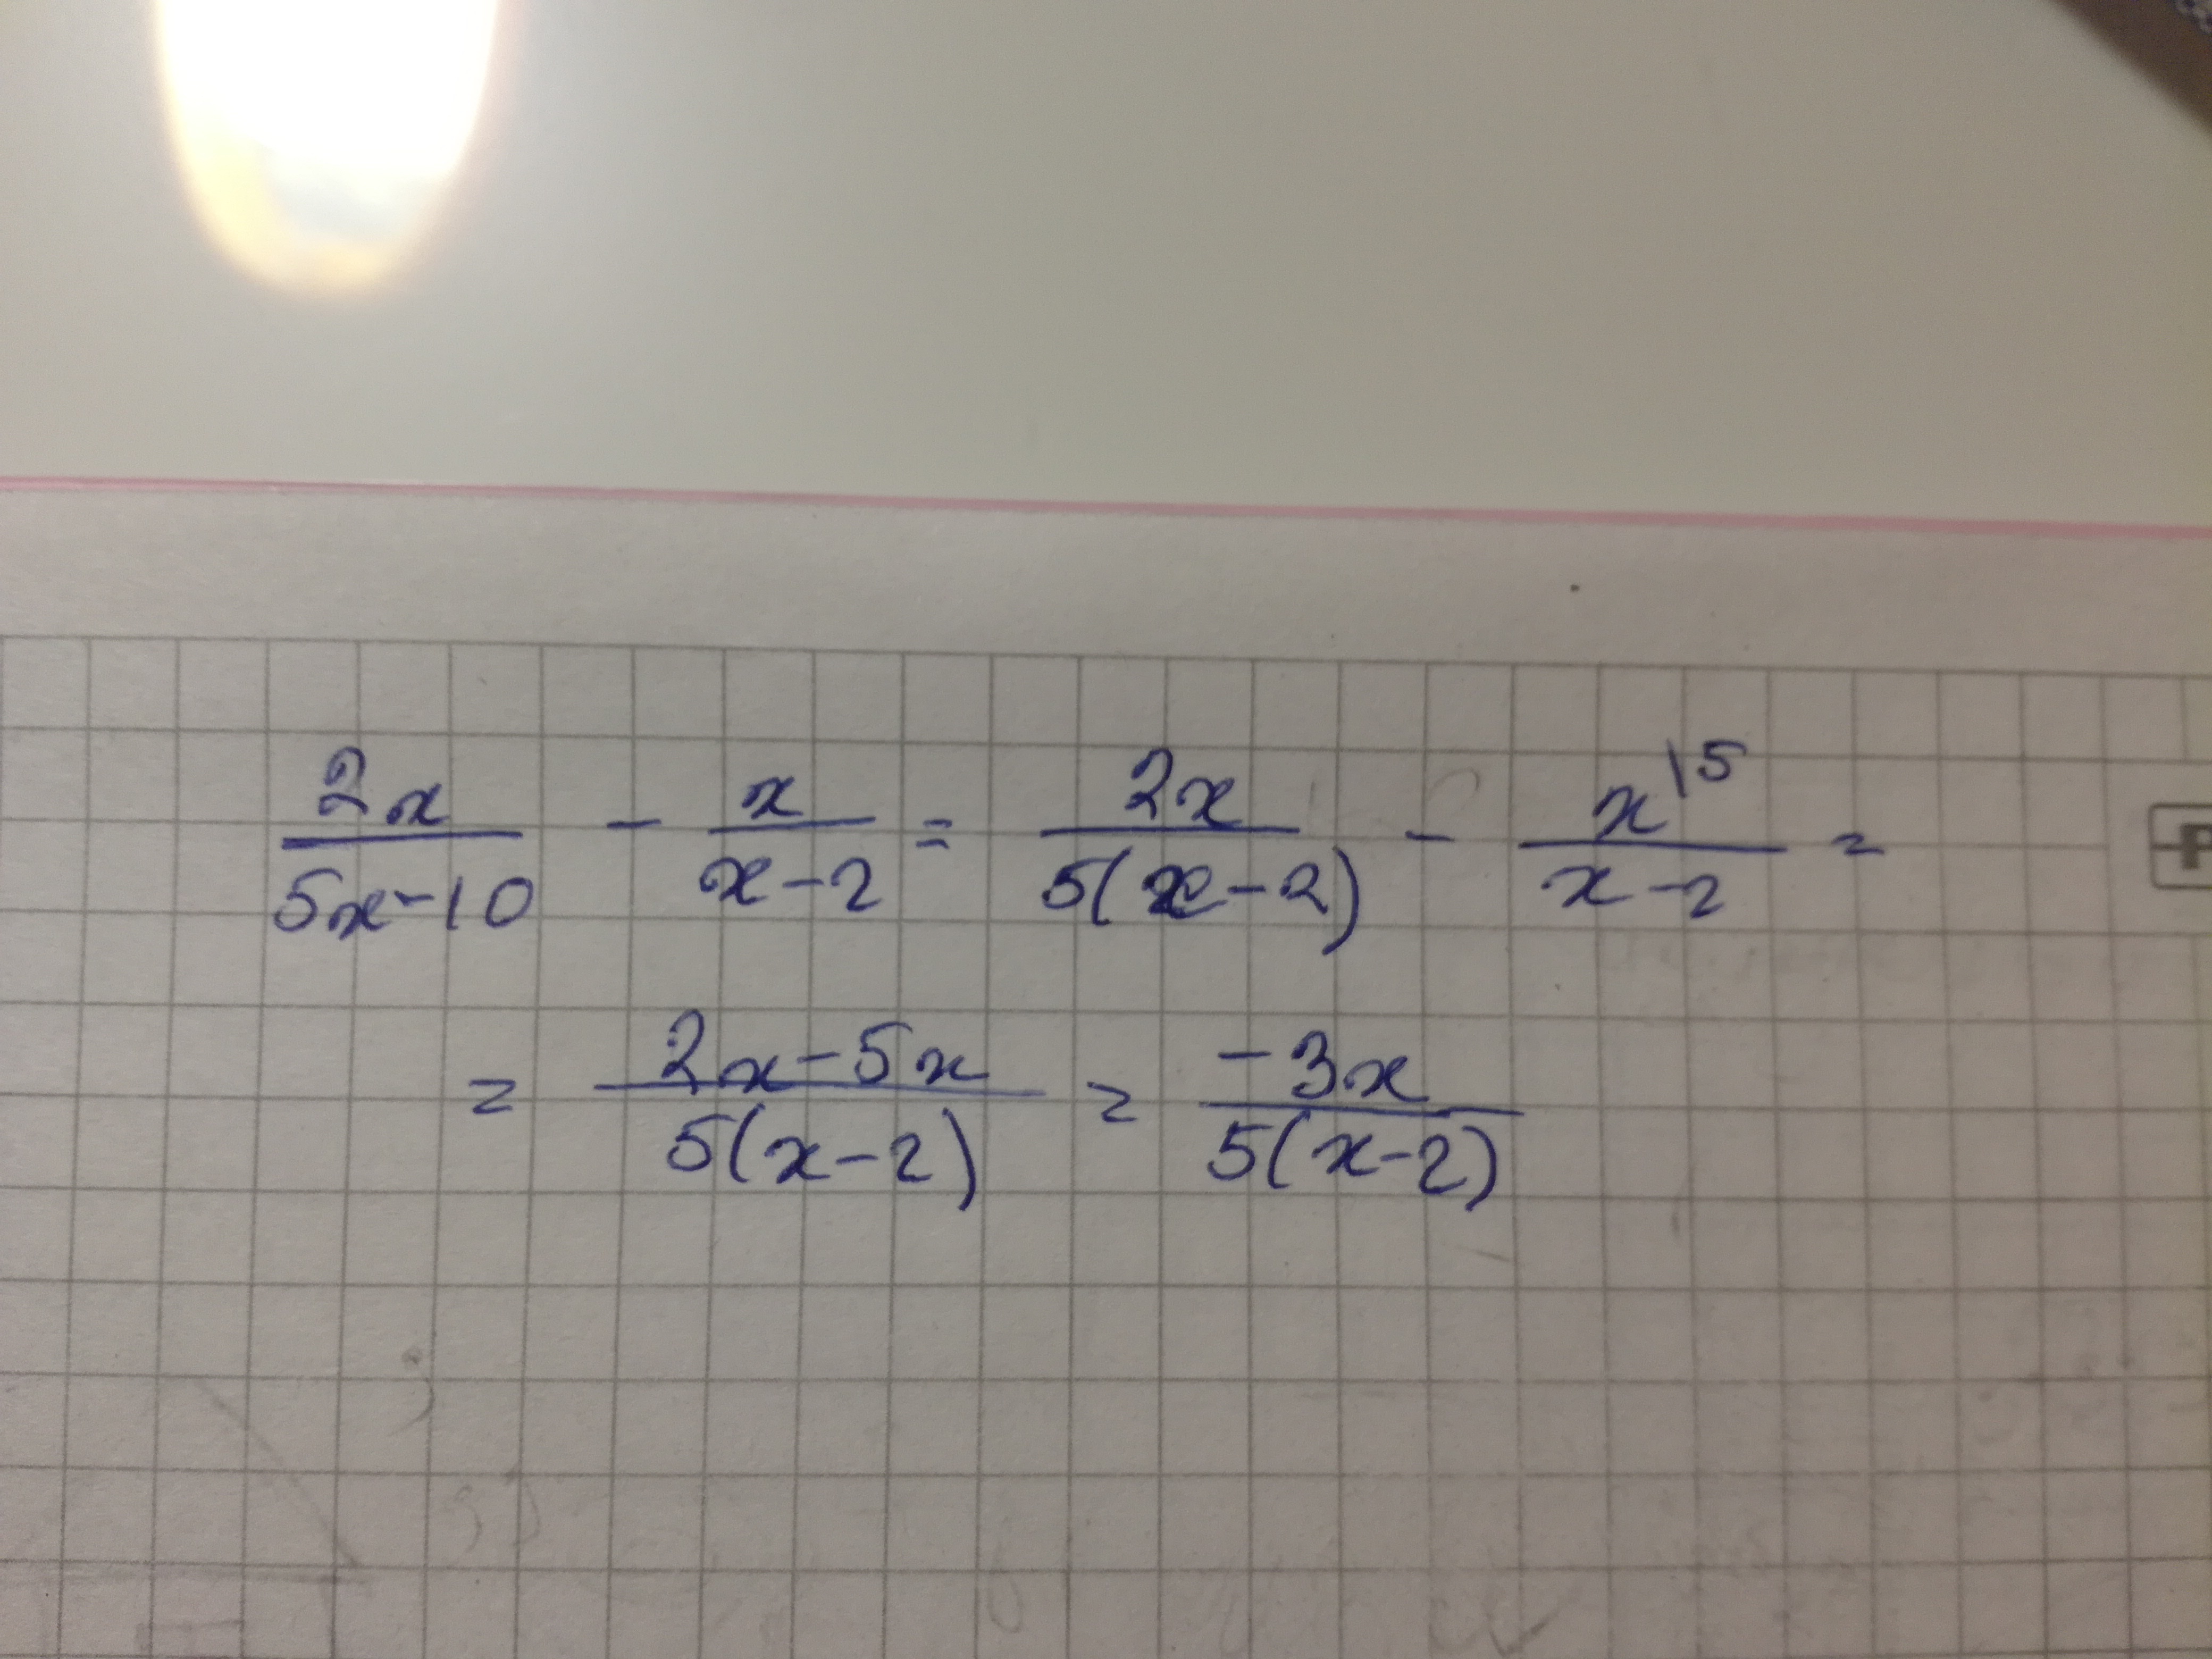 2x/(5x-10) - x/(x-2) = 2x/(5(x-2)) - x\5/(x-2) =
= (2x-5x)/(5(x-2)) = -3x/(5(x-2))